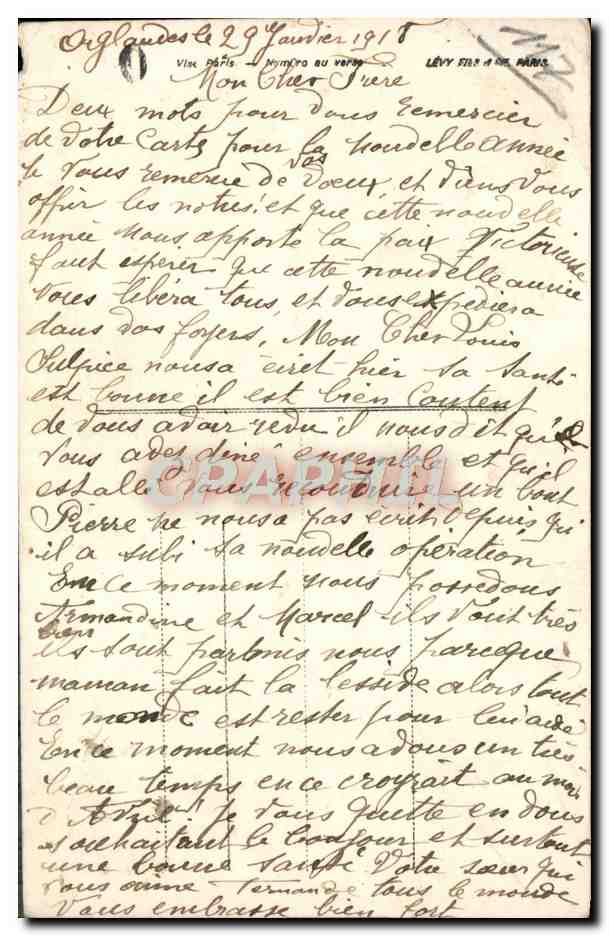 Orglandes le 29 Janvier 1918
Visé Paris — Numéro au verso
LÉVY FILS et Cie, PARIS
117
Mon Cher Frère
Deux mots pour vous remercier
de votre Carte pour la nouvelle année
Je vous remercie de vos voeux, et viens vous
offrir les notres! et que cette nouvelle
année nous apporte la paix Victorieuse
faut esperer que cette nouvelle année
vous libéra tous, et vous expediera
dans vos foyers, Mon Cher Louis
Sulpice nous a écrit hier sa Santé
est bonne il est bien Content
de vous avoir revu il nous dit qu'il
vous avez diné ensemble et qu'il
est allé vous reconduire un bout
Pierre ne nous a pas écrit depuis qu
il a subi sa nouvelle opération
En ce moment nous possedons
Armandine et Marcel ils vont très
bien
ils sont parmis nous parceque
maman fait la lessive alors tout
le monde est rester pour lui aidé
En ce moment nous avons un très
beau temps en ce croyrait au mois
d'Avril! Je vous quitte en vous
souhaitant le bonjour et surtout
une bonne santé Votre soeur qui
vous aime Fernande tous le monde
Vous embrasse bien fort
CPARAMA